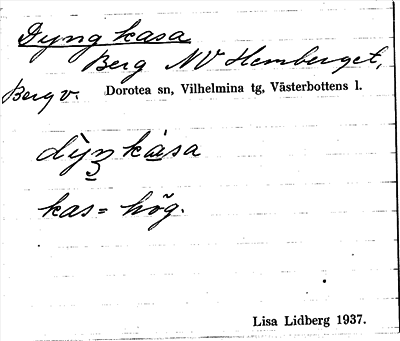 Dyngkasa
Berg NV Hemberget,
Berg v. Dorotea sn, Vilhelmina tg, Västerbottens l.
kas = hög.
Lisa Lidberg 1937.